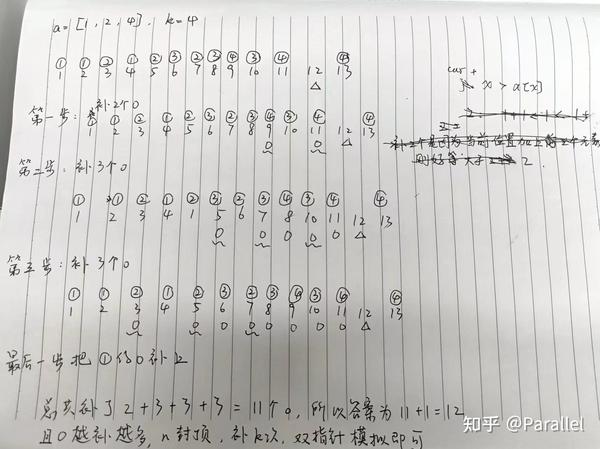 a = [1, 2, 4], k=4
① ① ② ③ ① ② ③ ② ③ ④ ③ ④ ④
1 2 3 4 5 6 7 8 9 10 11 12 13
△
cur +
x > a[x]
第一步: 补2个0
① ① ② ① ② ③ ② ③ ④ ③ ④ ④
1 2 3 4 5 6 7 8 9 10 11 12 13
0 0 △
第二步: 补3个0
① ① ② ① ② ③ ④ ③ ④ ④
1 2 3 4 5 6 7 8 10 11 12 13
0 0 0 0 0 △
第三步: 补3个0
① ① ② ① ② ③ ② ③ ④ ③ ④ ④
1 2 3 4 5 6 7 8 9 10 11 12 13
0 0 0 0 0 0 0 0 △
最后一步把①的0补上
总共补了 2+3+3+3=11个0, 所以答案为 11+1=12
且0越补越多, n封顶, 补k次, 双指针模拟即可
知乎 @Parallel